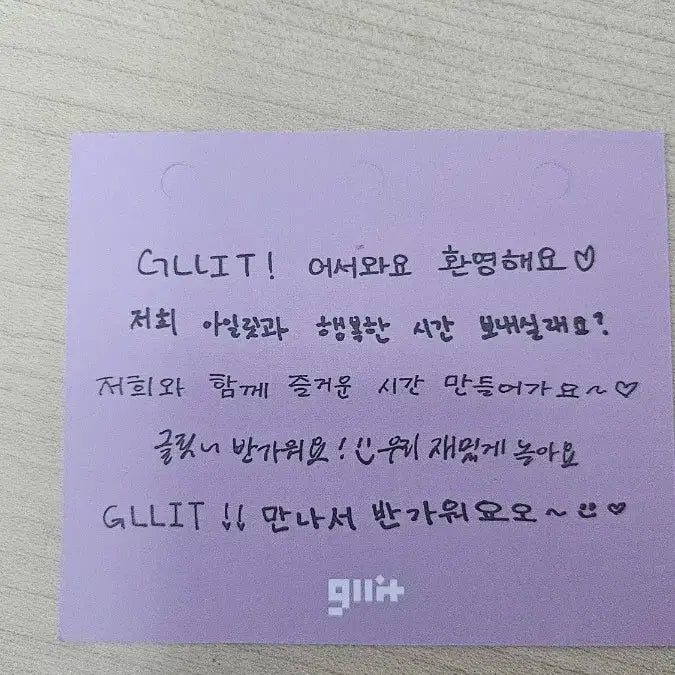 GLLIT! 어서와요 환영해요♡
저희 아일릿과 행복한 시간 보내실래요?
저희와 함께 즐거운 시간 만들어가요~♡
글릿~ 반가워요! 우리 재밌게 놀아요
GLLIT!! 만나서 반가워요오~♡
gllit